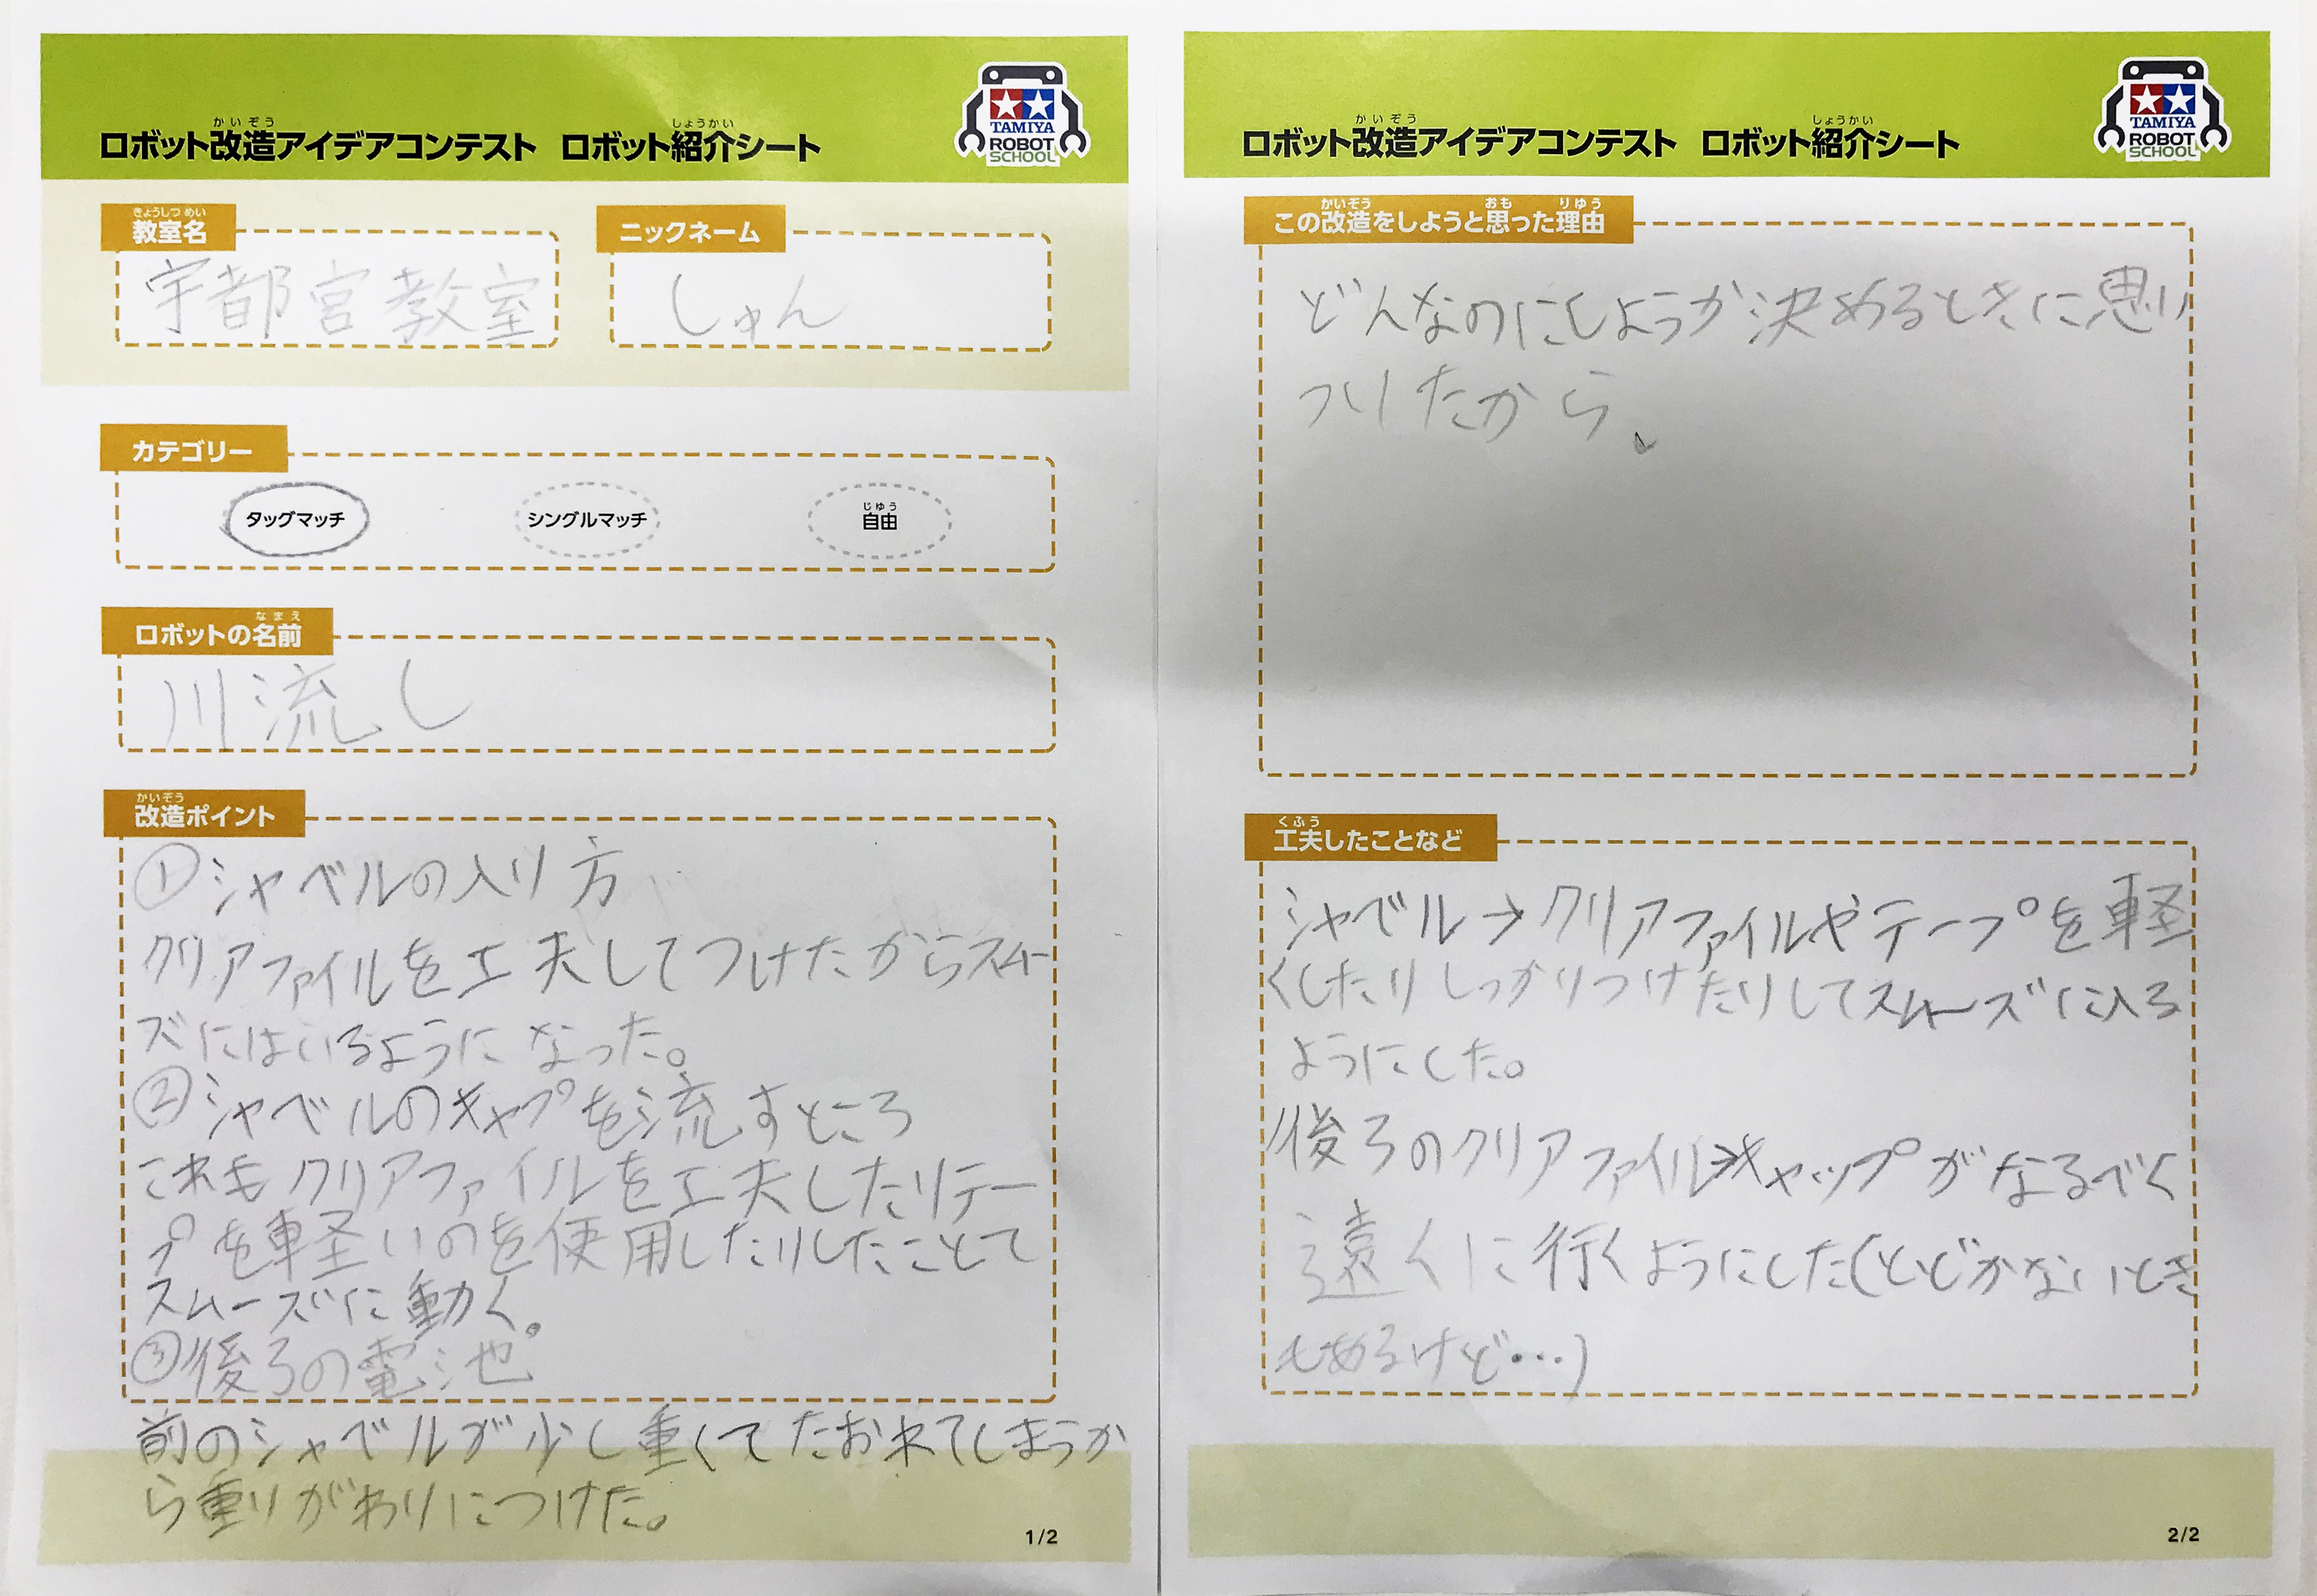 ロボット改造アイデアコンテスト ロボット紹介シート
かいぞう
しょうかい
TAMIYA
ROBOT
SCHOOL
きょうしつ めい
教室名
宇都宮教室
ニックネーム
しゅん
カテゴリー
タッグマッチ
シングルマッチ
じゆう
自由
なまえ
ロボットの名前
川流し
かいぞう
改造ポイント
①シャベルの入り方
クリアファイルを工夫してつけたからスムー
ズにはいるようになった。
②シャベルのキャプを流すところ
これもクリアファイルを工夫したりテー
プを軽いのを使用したりしたことて
スムーズに動く。
③後ろの電池
前のシャベルが少し重くてたおれてしまうか
ら重りがわりにつけた。
1/2
かいぞう
しょうかい
ロボット改造アイデアコンテスト ロボット紹介シート
TAMIYA
ROBOT
SCHOOL
かいぞう おも りゆう
この改造をしようと思った理由
どんなのにしようか決めるときに思い
ついたから、
くふう
工夫したことなど
シャベル→クリアファイルやテープを軽
くしたりしっかりつけたりしてスムーズに入る
ようにした。
後ろのクリアファイル→キャップがなるべく
遠くに行くようにした(とどかないとき
もあるけど…)
2/2